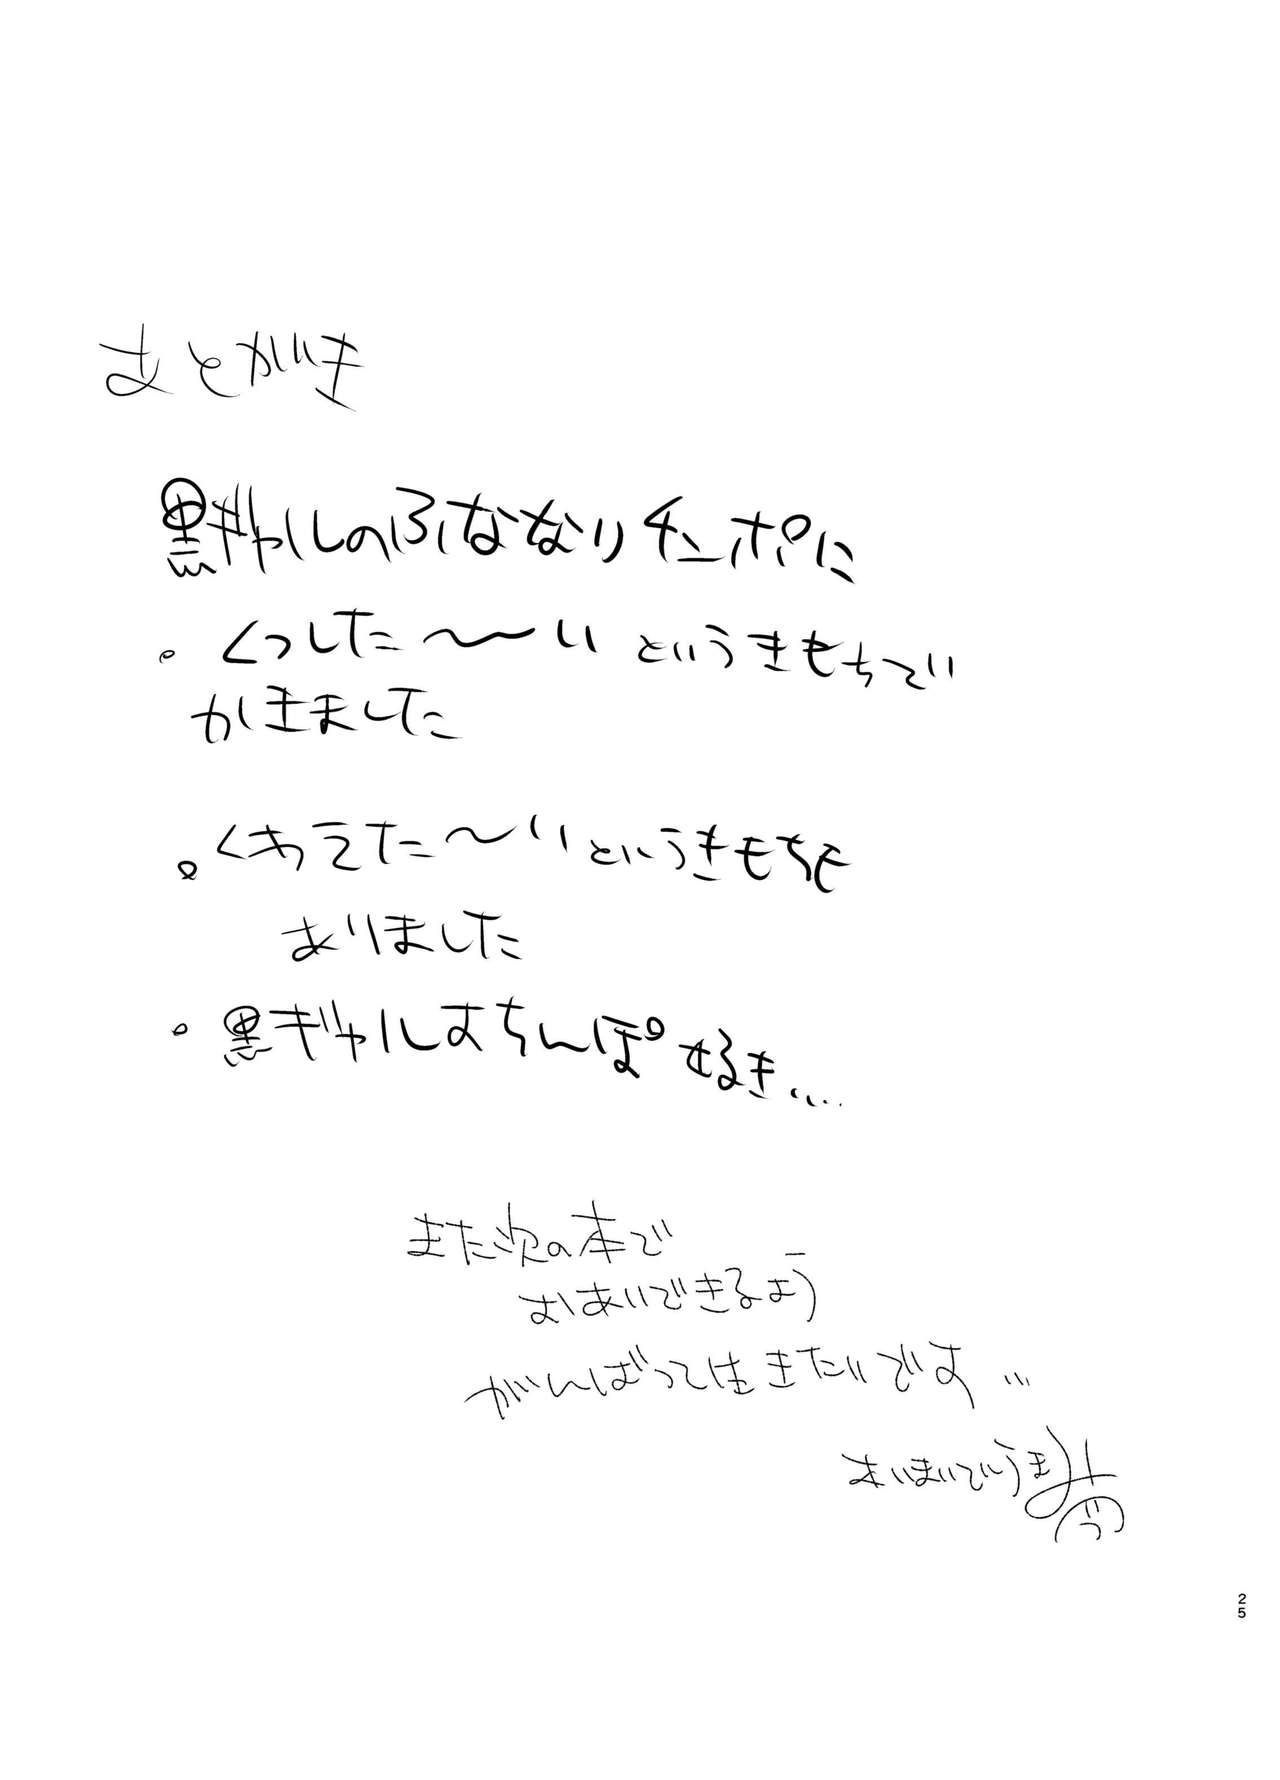 あとがき
黒ギャルのふたなりチンポに
・くっした〜〜い というきもちで
かきました
・くわえた〜い というきもちも
ありました
・黒ギャルおちんぽ好き…
また次の本で
おあいできるよう
がんばって生きたいです…
25